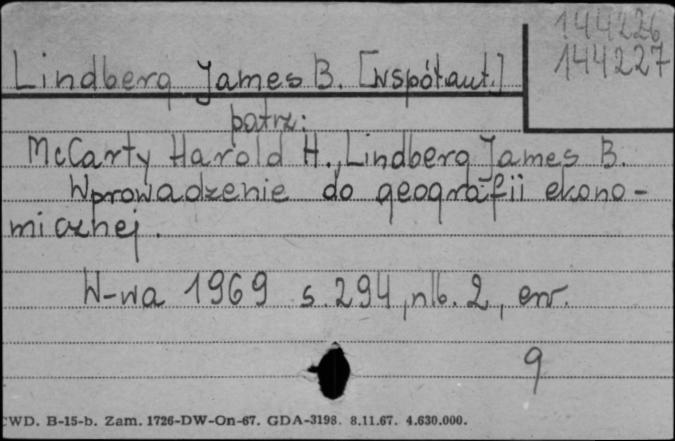 144226
144227
Lindberg James B. [współaut.]
patrz:
McCarty Harold H., Lindberg James B.
Wprowadzenie do geografii ekono-
micznej.
W-wa 1969 s. 294, nlb. 2, err.
9
CWD. B-15-b. Zam. 1726-DW-On-67. GDA-3198. 8.11.67. 4.630.000.